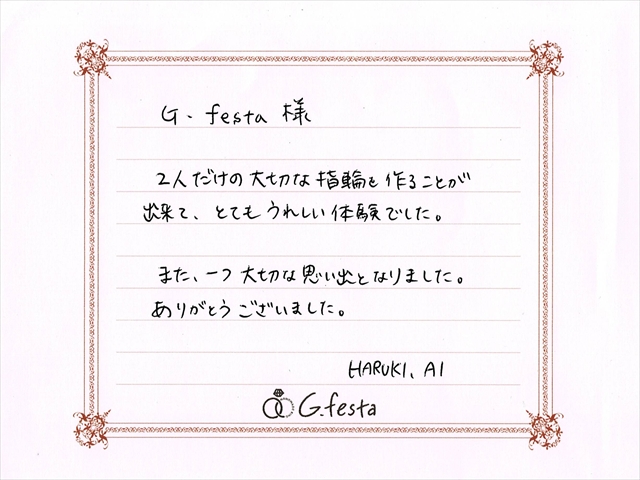 G. festa 様
2人だけの大切な指輪を作ることが
出来て、とてもうれしい体験でした。
また、一つ大切な思い出となりました。
ありがとうございました。
HARUKI、AI
G.festa